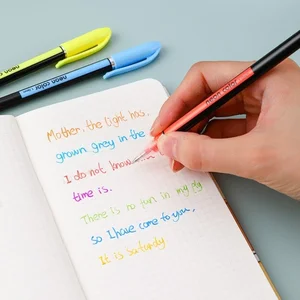 neon color
neon color
neon color
Mother. the light has.
grown grey in the
I do not know
time is.
There is no fun in my
so I have come to you,
It is saturday